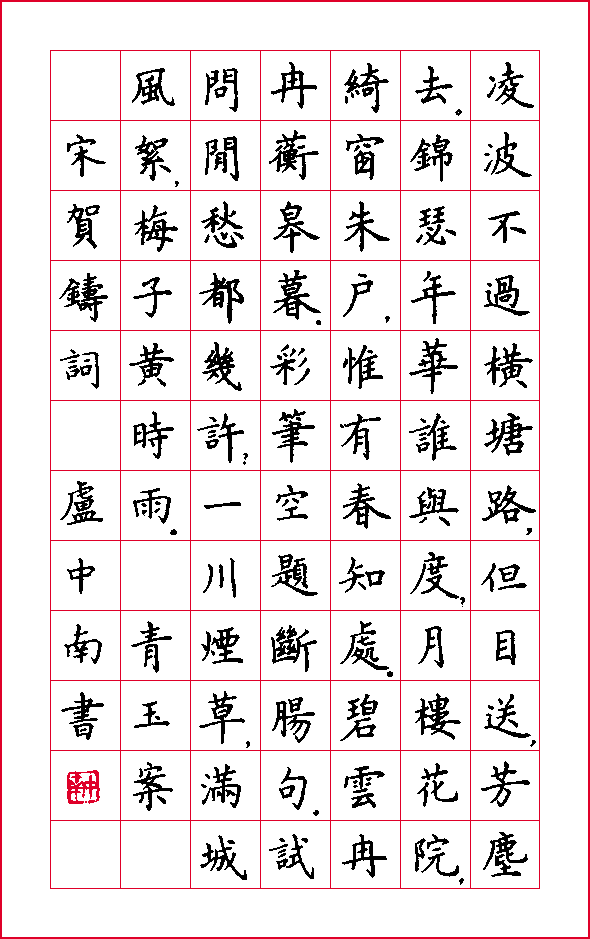 凌波不過橫塘路,但目送,芳塵
去。錦瑟年華誰與度?月樓花院,
綺窗朱户,惟有春知處。碧雲冉
冉蘅皋暮。彩筆空題斷腸句。試
問閒愁都幾許?一川煙草,滿城
風絮,梅子黃時雨。 青玉案
宋賀鑄詞 盧中南書